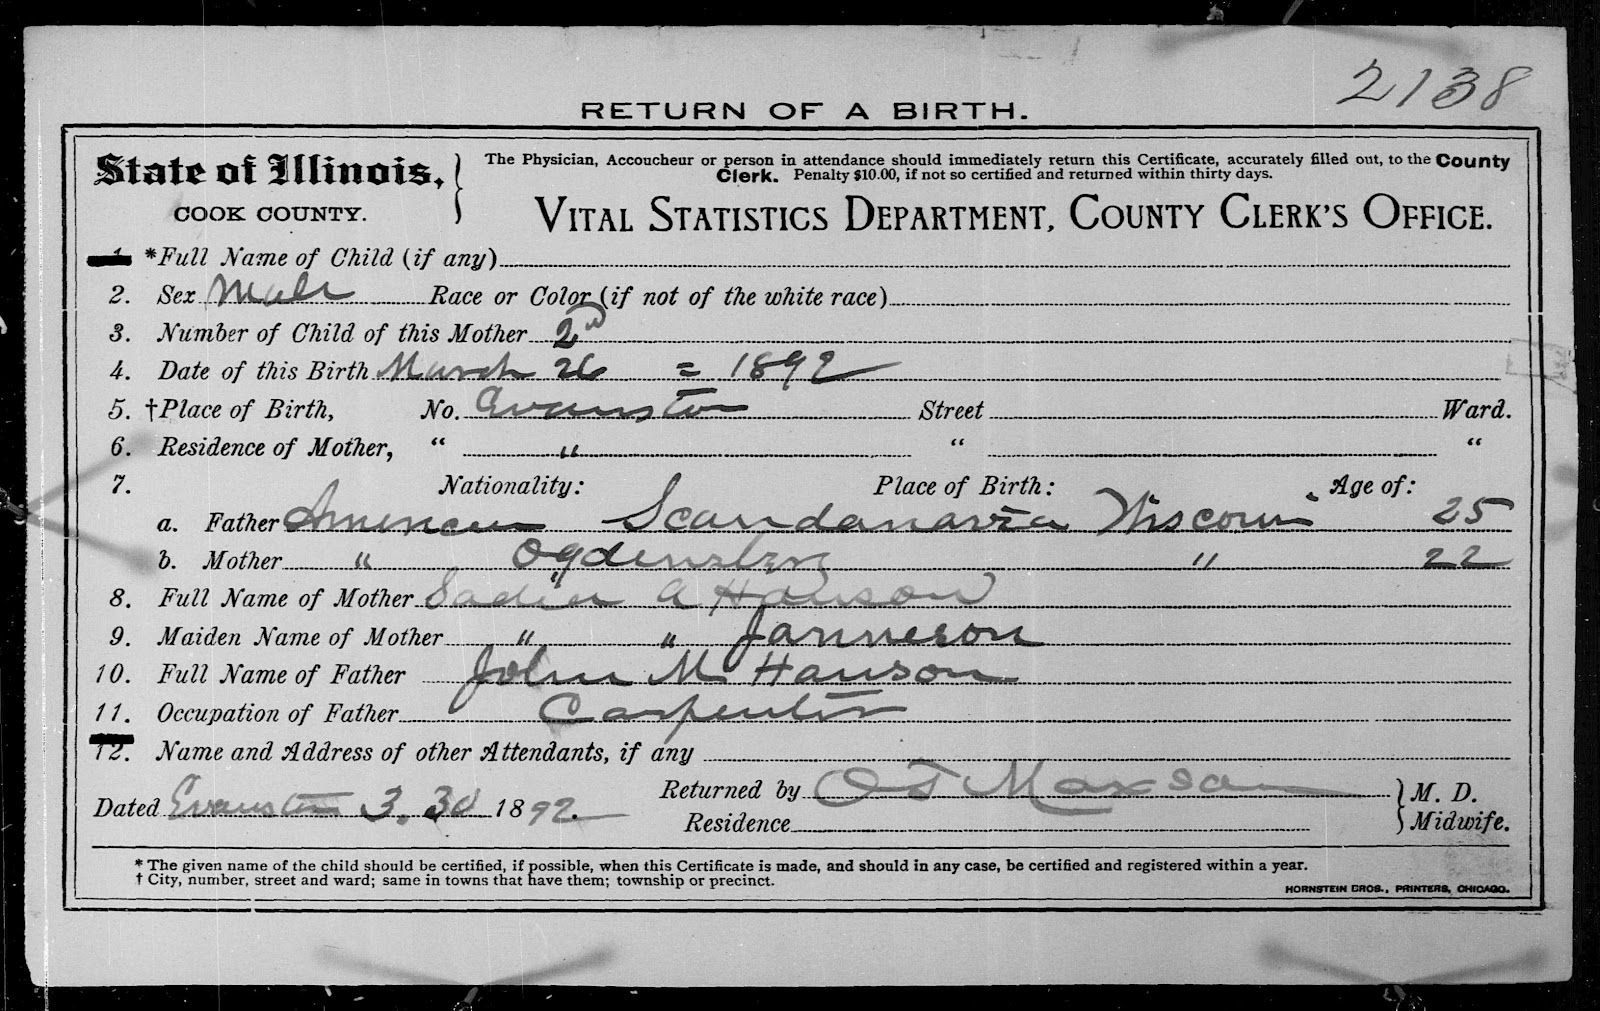 2138
RETURN OF A BIRTH.
State of Illinois,
COOK COUNTY.
The Physician, Accoucheur or person in attendance should immediately return this Certificate, accurately filled out, to the County
Clerk. Penalty $10.00, if not so certified and returned within thirty days.
VITAL STATISTICS DEPARTMENT, COUNTY CLERK'S OFFICE.
1. *Full Name of Child (if any)
2. Sex Male Race or Color (if not of the white race)
3. Number of Child of this Mother 2nd
4. Date of this Birth March 26 = 1892
5. †Place of Birth, No. Evanston Street Ward.
6. Residence of Mother, " " " "
7. Nationality: Place of Birth: Age of:
a. Father American Scandanavia Wisconsin 25
b. Mother " Ogdensburg " 22
8. Full Name of Mother Sadie A Hanson
9. Maiden Name of Mother " " Janneson
10. Full Name of Father John M Hanson
11. Occupation of Father Carpenter
12. Name and Address of other Attendants, if any
Dated Evanston 3. 30 1892. Returned by O T Maxson M. D.
Residence Midwife.
* The given name of the child should be certified, if possible, when this Certificate is made, and should in any case, be certified and registered within a year.
† City, number, street and ward; same in towns that have them; township or precinct.
HORNSTEIN BROS., PRINTERS, CHICAGO.